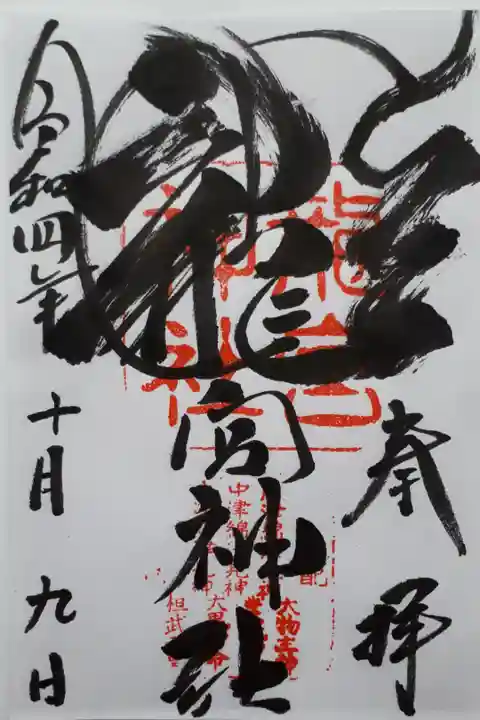 奉拝
龍宮神社
令和四年
十月九日
龍宮
神社
大物主神
中津綿津見神
桓武天皇